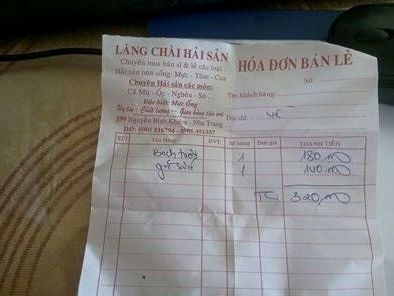 LÀNG CHÀI HẢI SẢN
Chuyên mua bán sỉ & lẻ các loại
Hải sản tươi sống: Mực - Tôm - Cua
Chuyên Hải sản các món:
Cá Mú - Ốc - Nghêu - Sò
Đặc biệt: Mực Ống
Uy tín - Chất lượng - Giao hàng tận nơi
199 Nguyễn Bỉnh Khiêm - Nha Trang
DĐ: 0905 816794 - 0905 451337
HÓA ĐƠN BÁN LẺ
Số
Tên khách hàng:
Địa chỉ:
STT Tên Hàng ĐVT Số lượng Đơn giá THÀNH TIỀN
Bạch tuộc 1 180
1 140
TC: 320